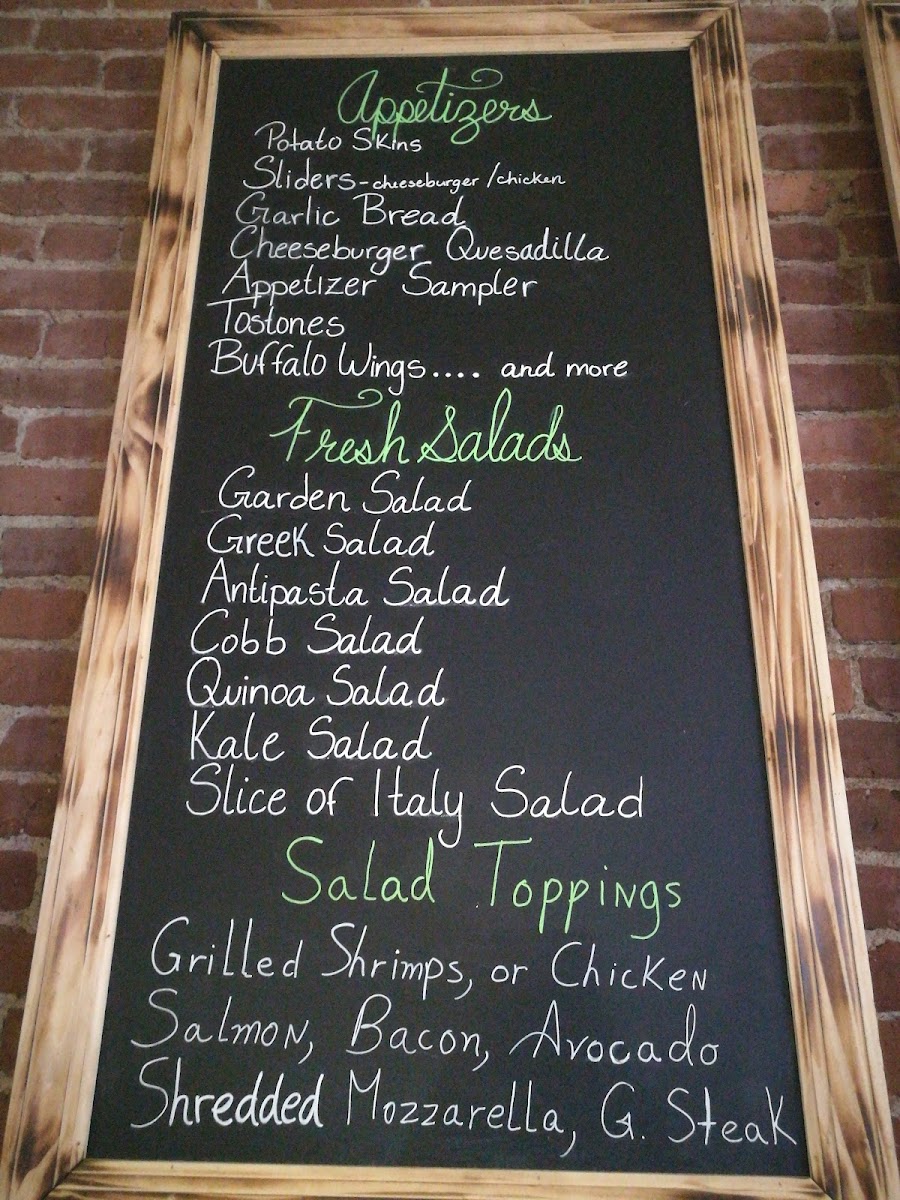 Appetizers
Potato Skins
Sliders-cheeseburger/chicken
Garlic Bread
Cheeseburger Quesadilla
Appetizer Sampler
Tostones
Buffalo Wings.... and more
Fresh Salads
Garden Salad
Greek Salad
Antipasta Salad
Cobb Salad
Quinoa Salad
Kale Salad
Slice of Italy Salad
Salad Toppings
Grilled Shrimps, or Chicken
Salmon, Bacon, Avocado
Shredded Mozzarella, G. Steak